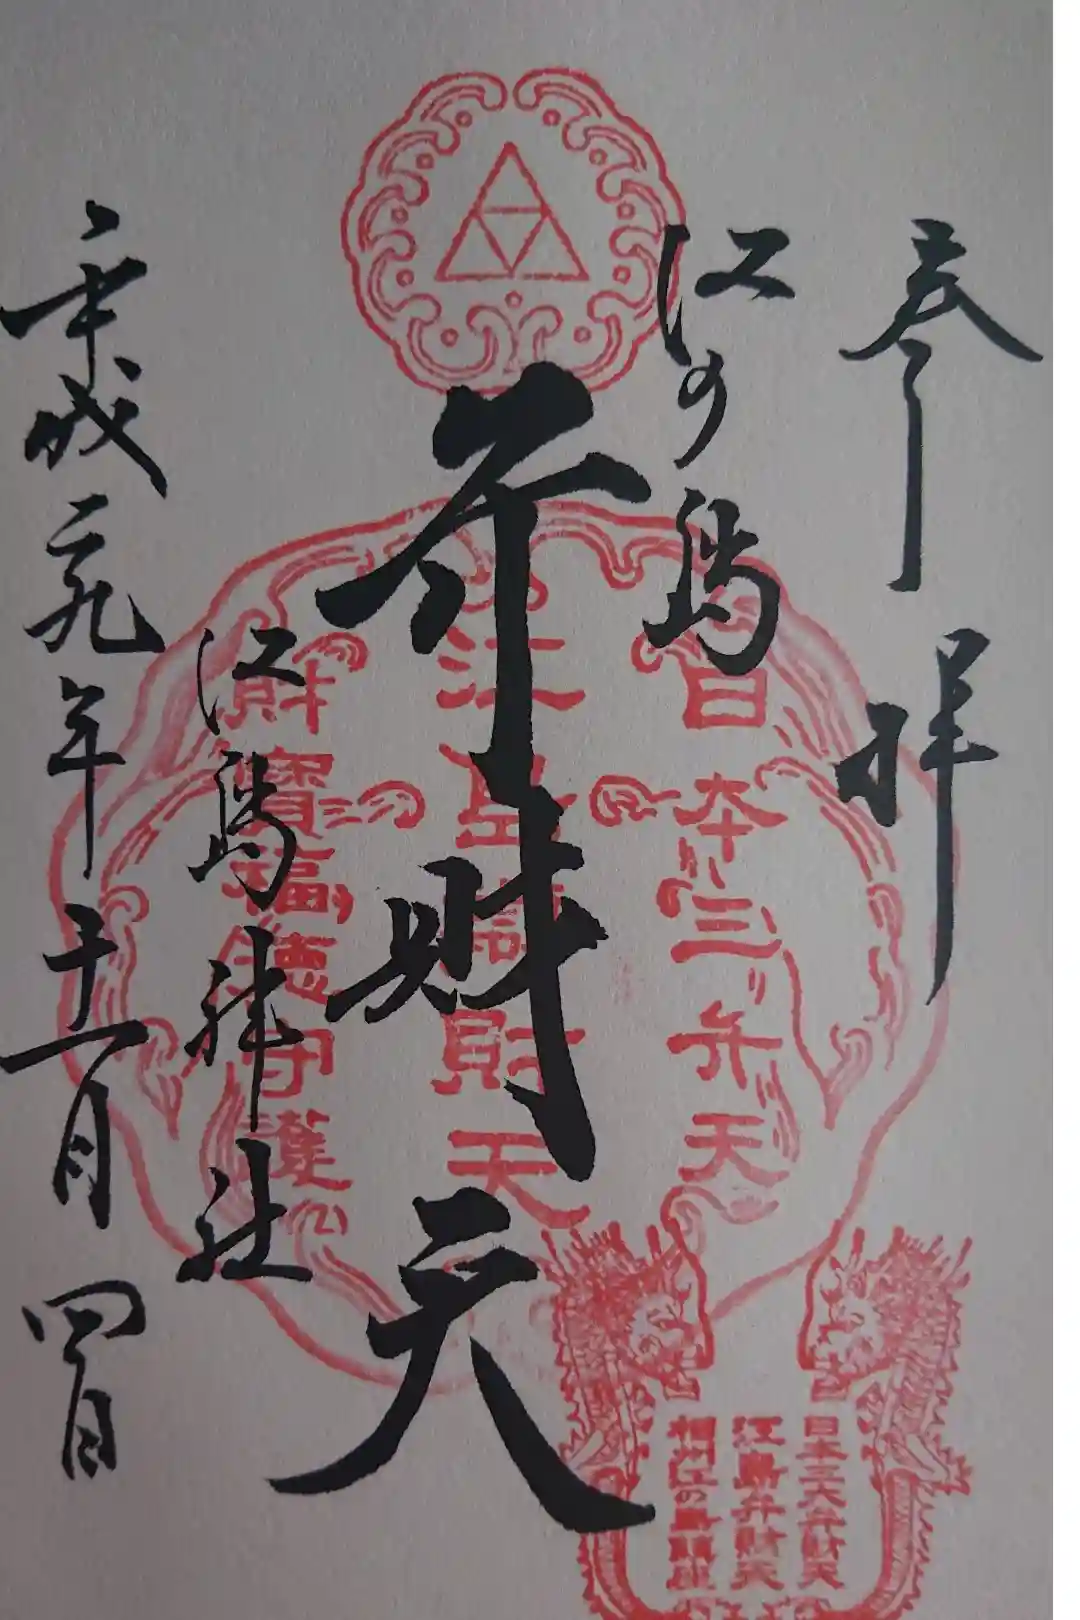 参拝
江の島
弁財天
江島神社
平成二九年十一月四日
日本三弁天
江島辯財天
財寶福徳守護
日本三大弁財天
江島弁財天
相州江の島鎮座